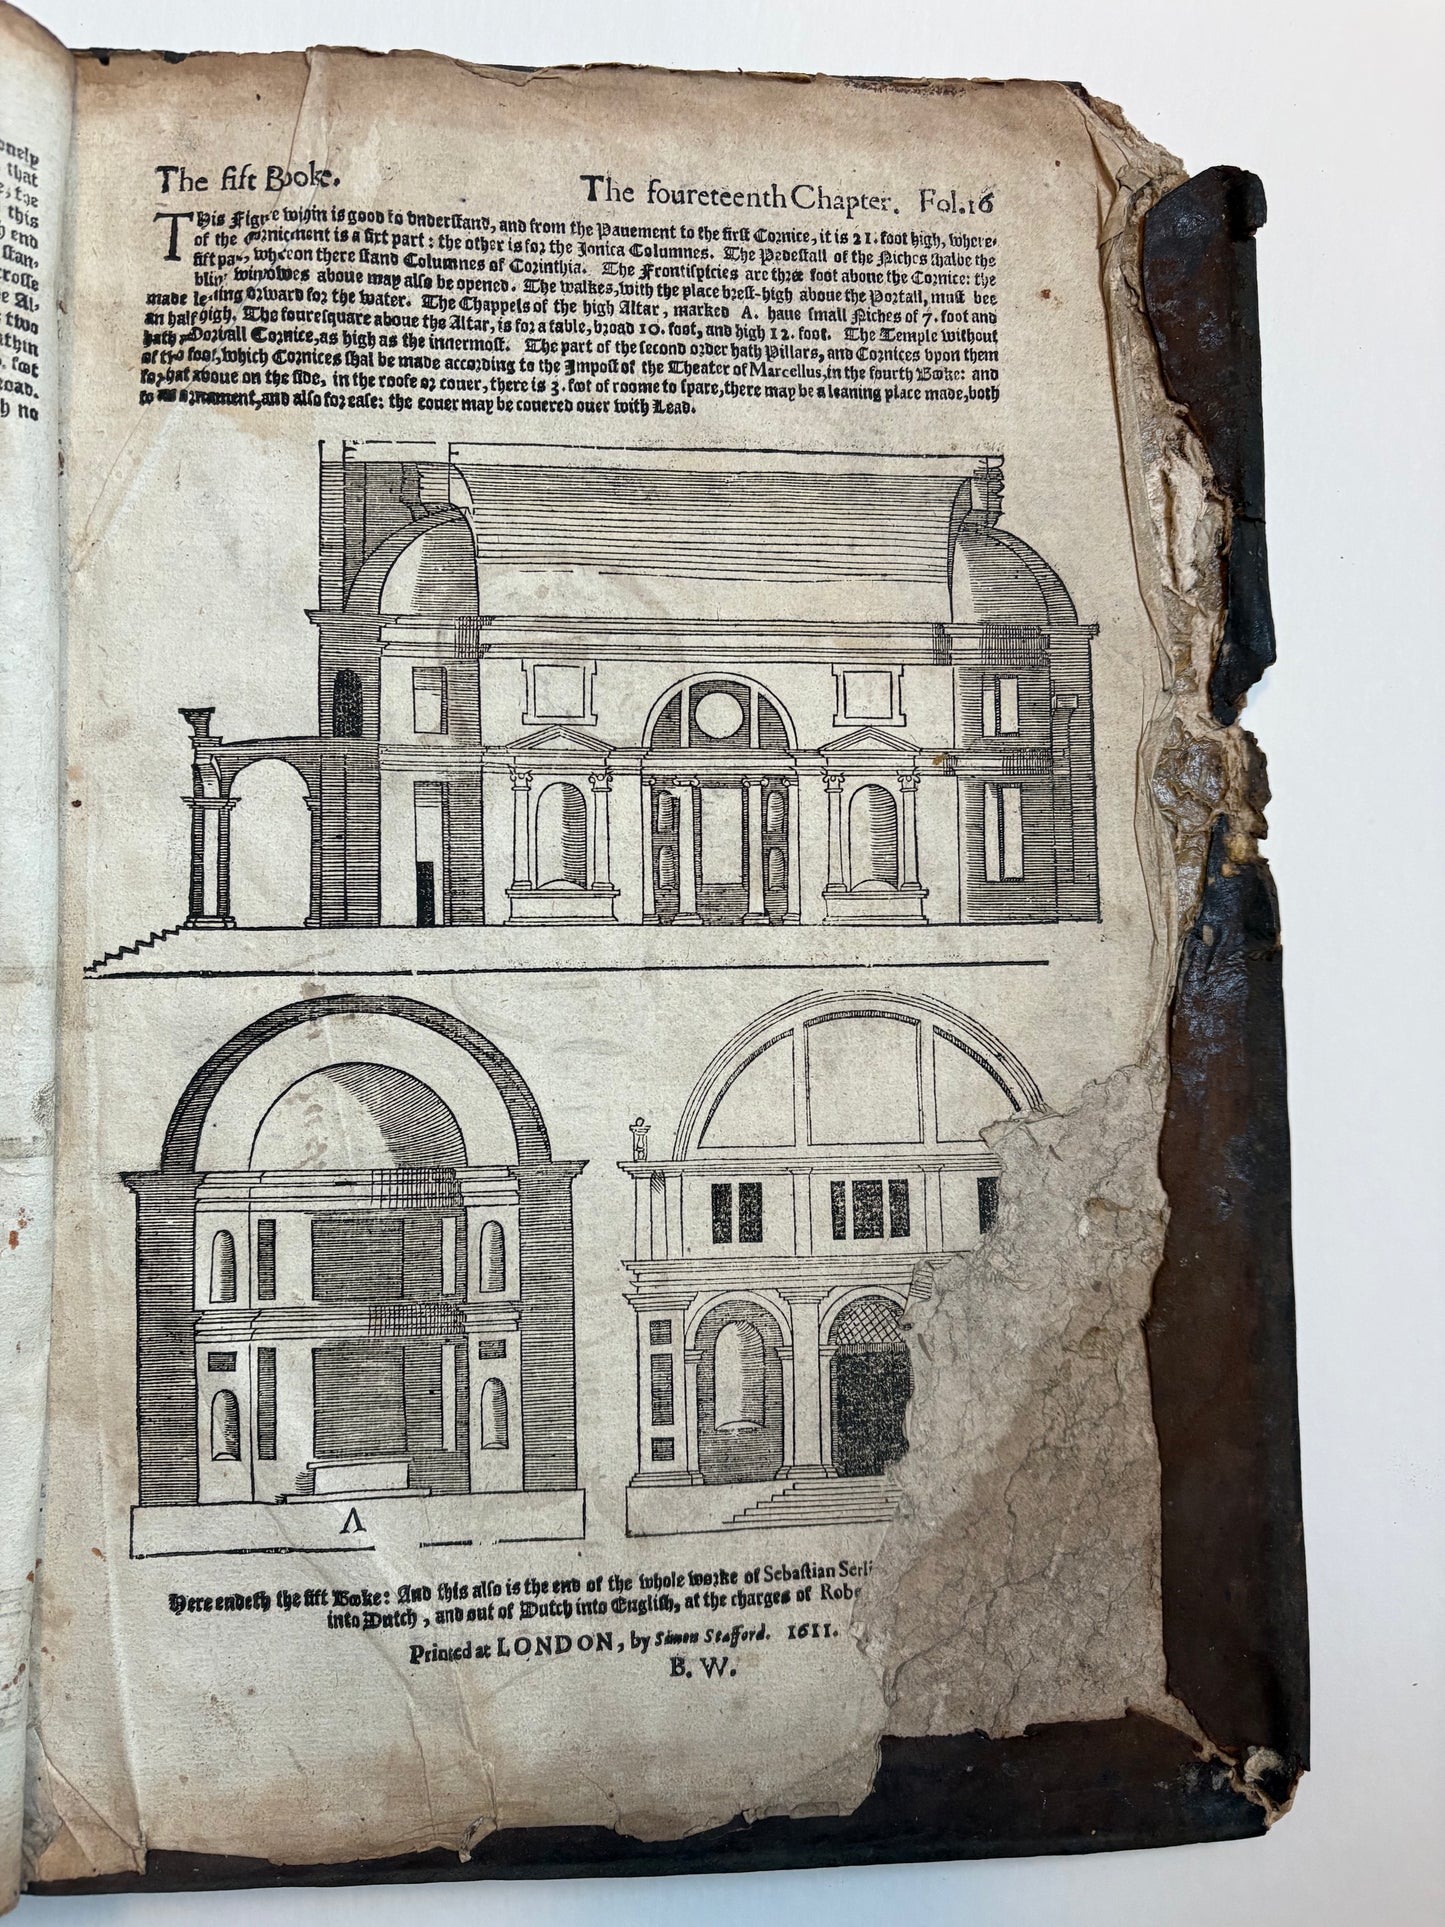 onely
that
e, the
this
end
stan,
crosse
e Al-
two
thin
foot
road.
h no
The fift Booke.
The foureteenth Chapter. Fol.16
This Figure within is good to vnderstand, and from the Pauement to the first Cornice, it is 21. foot high, where-
of the Cornicment is a fixt part: the other is for the Ionica Columnes. The Pedestall of the Niches shalbe the
fift part, whereon there stand Columnes of Corinthia. The Frontispicies are three foot aboue the Cornice: the
blind windowes aboue may also be opened. The walkes, with the place brest-high aboue the Portall, must bee
made leaning forward for the water. The Chappels of the high Altar, marked A. haue small Niches of 7. foot and
an half high. The fouresquare aboue the Altar, is for a table, broad 10. foot, and high 12. foot. The Temple without
hath ouerall Cornice, as high as the innermost. The part of the second order hath Pillars, and Cornices vpon them
of two foot, which Cornices shal be made according to the Impost of the Theater of Marcellus, in the fourth Booke: and
for that aboue on the side, in the roofe or couer, there is 3. foot of roome to spare, there may be a leaning place made, both
to an ornament, and also for ease: the couer may be couered ouer with Lead.
A
Here endeth the fift Booke: And this also is the end of the whole worke of Sebastian Serli
into Dutch, and out of Dutch into English, at the charges of Robe
Printed at LONDON, by Simon Stafford. 1611.
B. W.